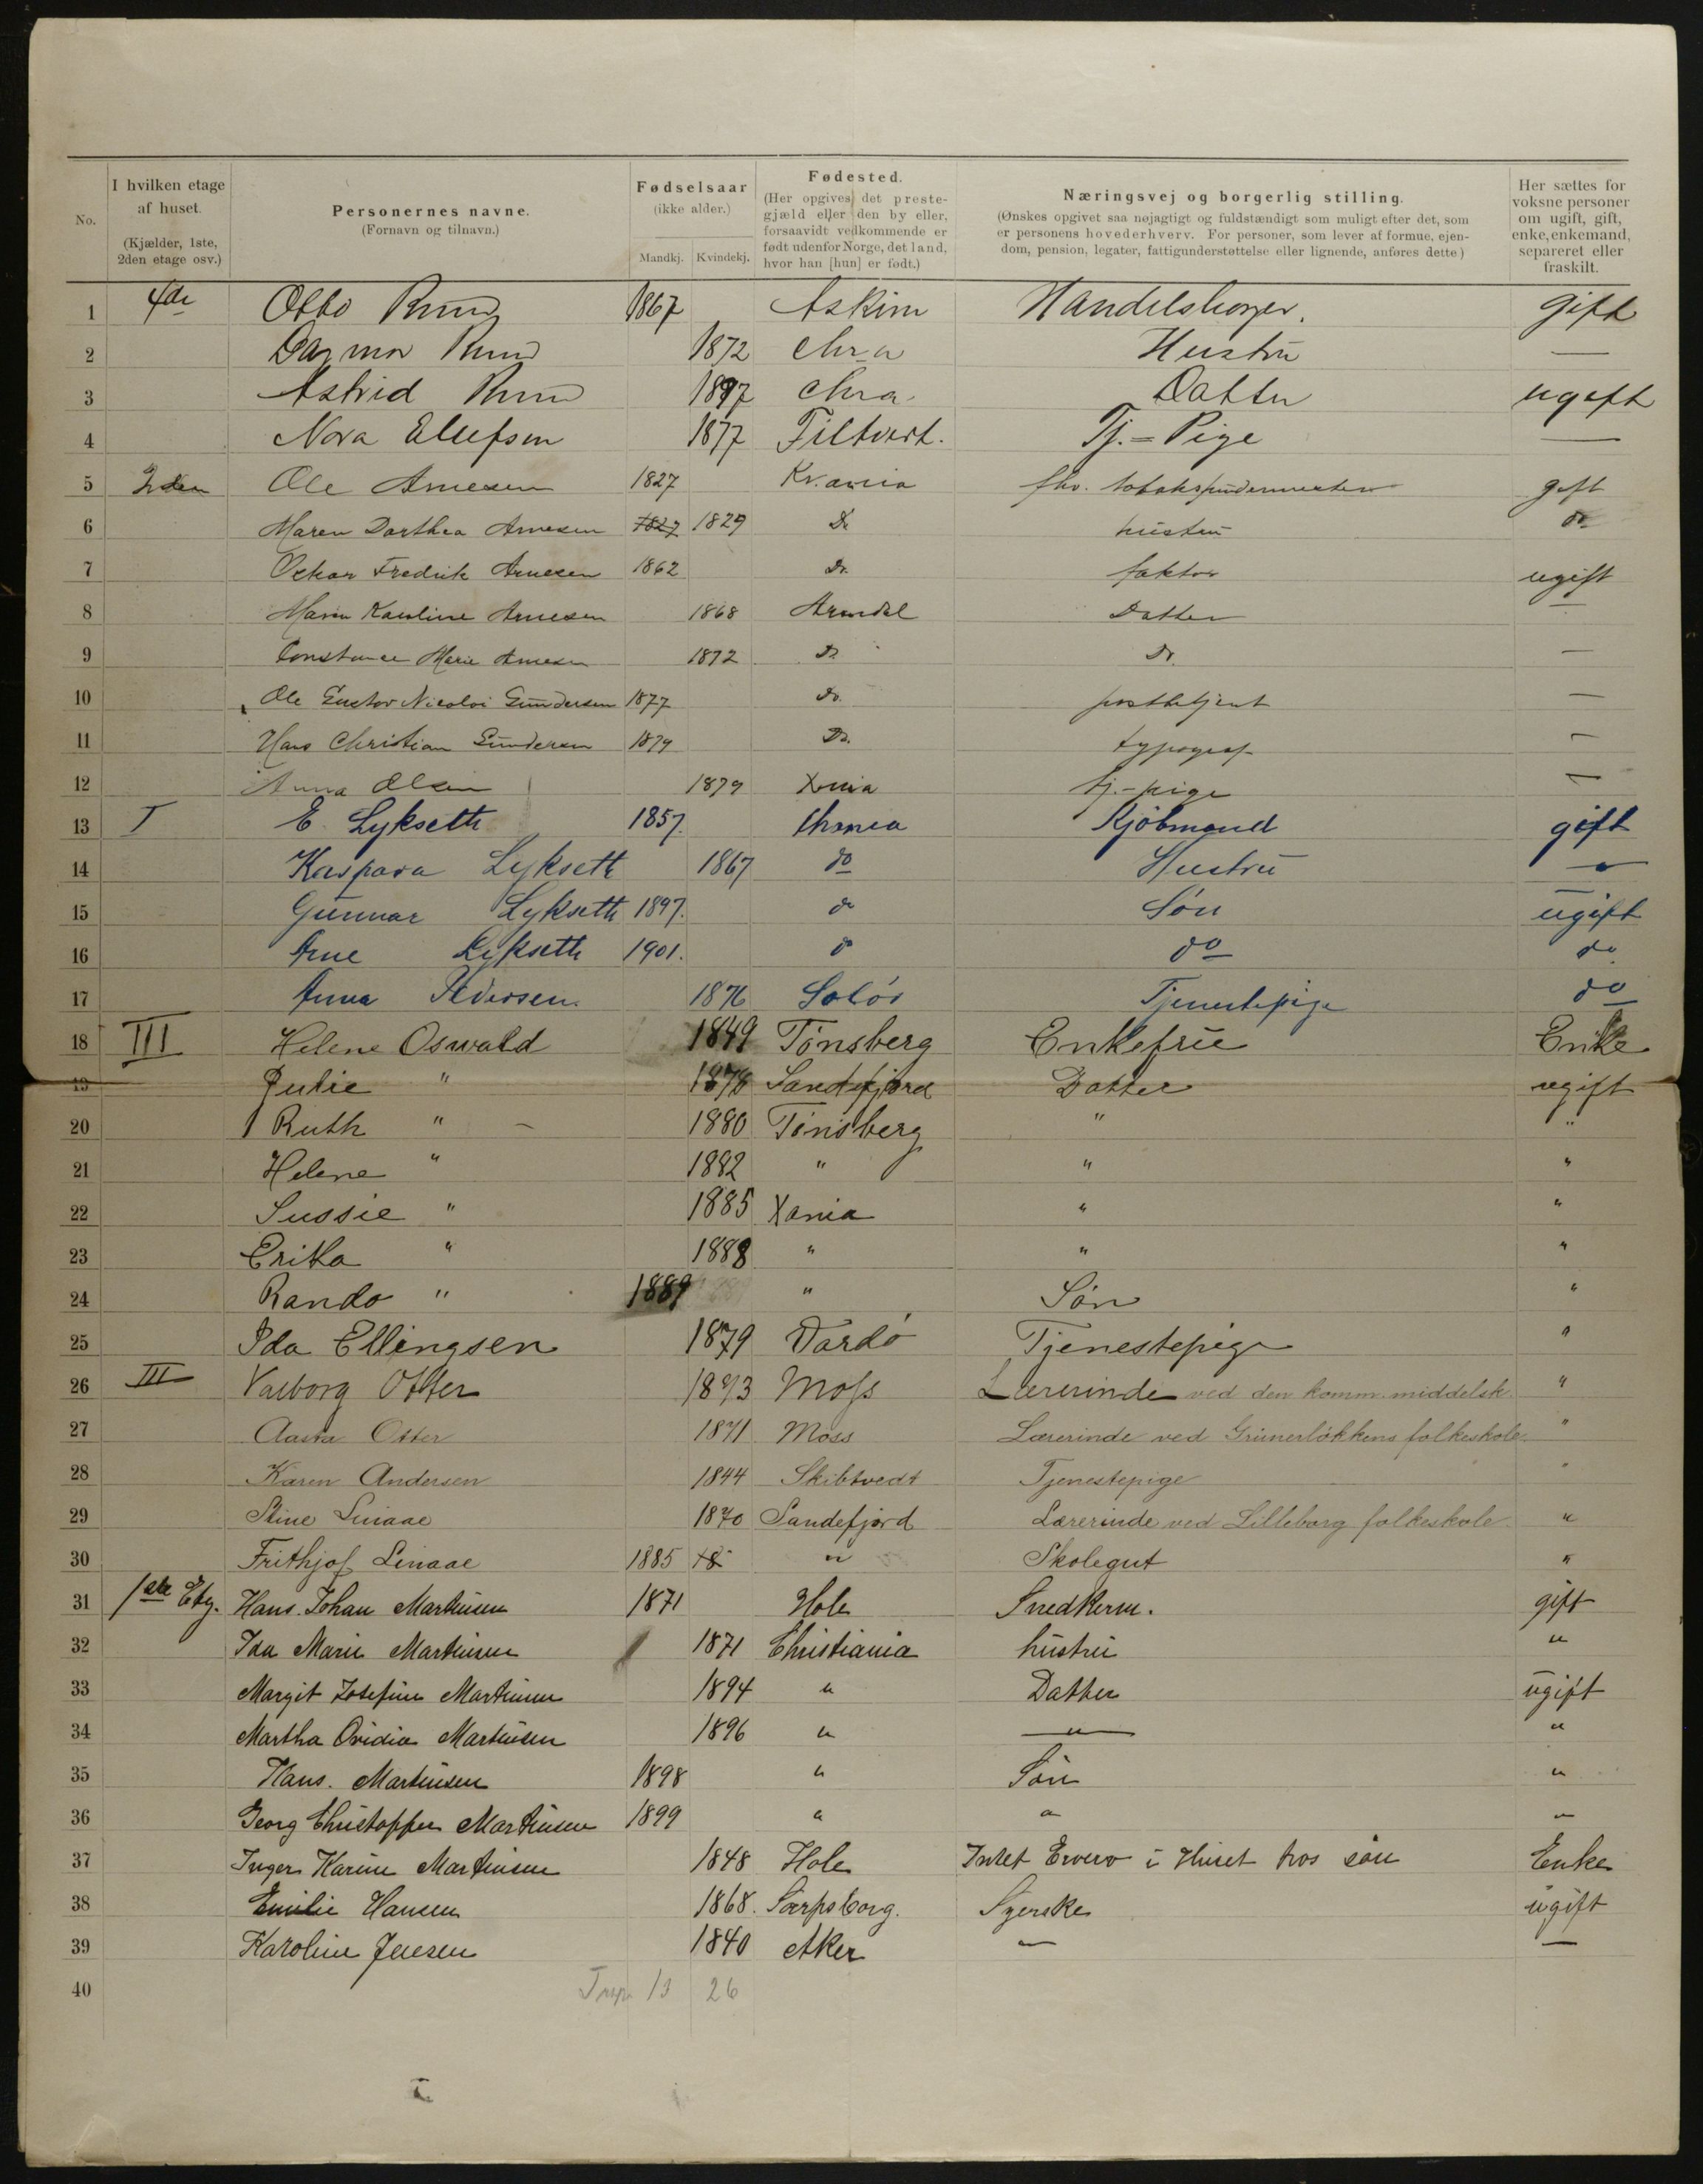 No. | I hvilken etage af huset. (Kjælder, 1ste, 2den etage osv.) | Personernes navne. (Fornavn og tilnavn.) | Fødselsaar (ikke alder.) Mandkj. Kvindekj. | Fødested. (Her opgives det prestegjæld eller den by eller, forsaavidt vedkommende er født udenfor Norge, det land, hvor han [hun] er født.) | Næringsvej og borgerlig stilling. (Ønskes opgivet saa nøjagtigt og fuldstændigt som muligt efter det, som er personens hovederhverv. For personer, som lever af formue, ejendom, pension, legater, fattigunderstøttelse eller lignende, anføres dette) | Her sættes for voksne personer om ugift, gift, enke, enkemand, separeret eller fraskilt.
1 4de Otto Ruud 1867 Askim Handelsborger. gift
2 Dagmar Ruud 1872 Chr.a Hustru —
3 Astrid Ruud 1897 Chra. Datter ugift
4 Nora Ellefsen 1877 Filtvedt. Tj.=Pige —
5 2den Ole Arnesen 1827 Kr.ania fhv. gift
6 Maren Dorthea Arnesen 1827 1829 Do hustru do
7 Oskar Fredrik Arnesen 1862 Do. faktor ugift
8 Karoline Arnesen 1868 Arendal Datter —
9 Constance Marie Arnesen 1872 Do Do. —
10 Ole Gustav Nicolai Gundersen 1877 Do. postbetjent —
11 Hans Christian Gundersen 1879 Do. typograf —
12 Anna Olsen 1879 Xania tj.-pige —
13 I E. Lykseth 1857. Chrania Kjøbmand gift
14 Kaspara Lykseth 1867 do Hustru
15 Gunnar Lykseth 1897. do Søn ugift
16 Arne Lykseth 1901. do do do
17 Anna Pedersen. 1876 Solør Tjenestepige do
18 III Helene Oswald 1849 Tønsberg Enkefrue Enke
19 Julie " 1878 Sandefjord Datter ugift
20 Ruth " – 1880 Tønsberg " "
21 Helene " 1882 " " "
22 Sussie " 1885 Xania " "
23 Erika " 1888 " " "
24 Rando " 1889 " Søn "
25 Ida Ellingsen 1879 Vardø Tjenestepige "
26 III Valborg Otter 1873 Moss Lærerinde ved den komm. middelsk "
27 Aasta Otter 1871 Moss Lærerinde ved Grünerløkkens folkeskole. "
28 Karen Andersen 1844 Skibtvedt Tjenestepige "
29 Stine Linaae 1870 Sandefjord Lærerinde ved Lilleborg folkeskole "
30 Frithjof Linaae 1885 18 " Skolegut "
31 1ste Etg. Hans Johan Martinsen 1871 Hole Snedkerm. gift
32 Ida Marie Martinsen 1871 Christiania hustru "
33 Margit Josefine Martinsen 1894 " Datter ugift
34 Martha Ovidia Martinsen 1896 " — " — "
35 Hans. Martinsen 1898 " Søn "
36 Georg Christoffer Martinsen 1899 " " "
37 Inger Karine Martinsen 1848 Hole Intet Erverv i Huset hos søn Enke
38 Emilie Hansen 1868. Sarpsborg. Syerske ugift
39 Karoline Jensen 1840 Aker — —
40 13 26